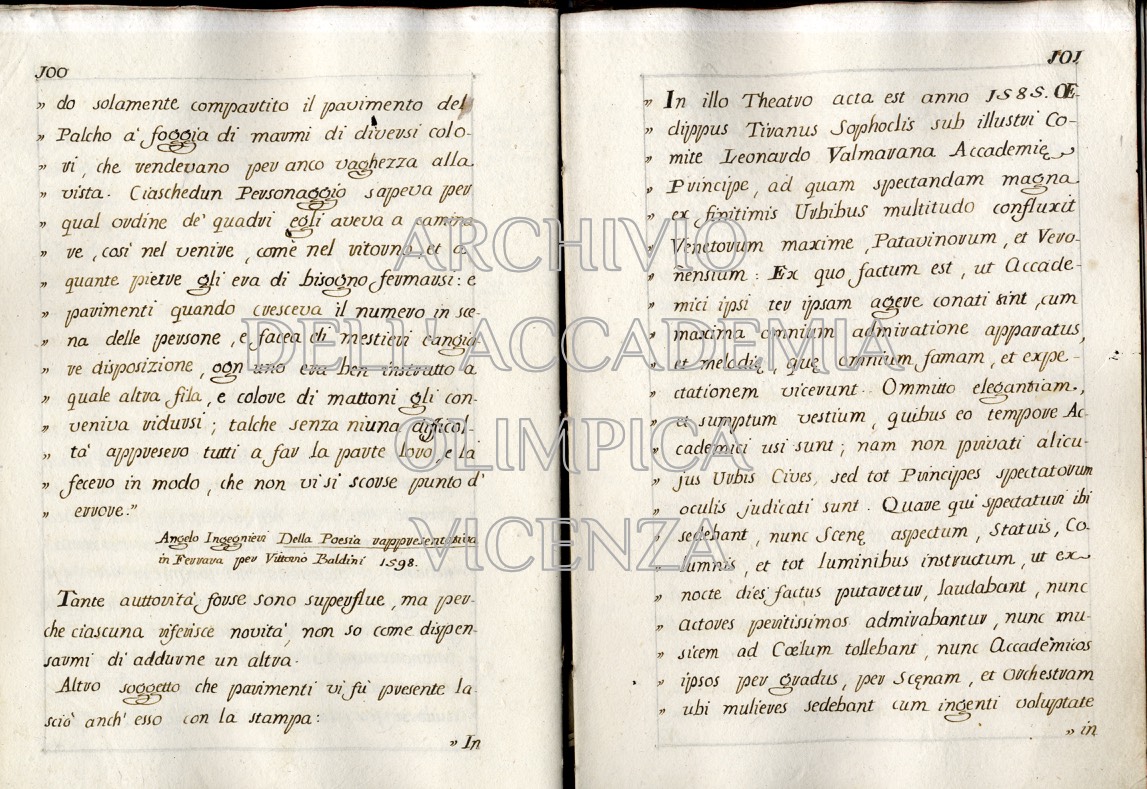 100
„ do solamente compartito il pavimento del
„ Palcho a' foggia di marmi di diversi colo-
„ ri, che rendevano per anco vaghezza alla
„ vista. Ciaschedun Personaggio sapeva per
„ qual ordine de' quadri egli aveva a camina
„ re, così nel venire, come nel ritorno, et a
„ quante pietre gli era di bisogno fermarsi: e
„ pavimenti quando cresceva il numero in sce-
„ na delle persone, e facea di mestieri cangia-
„ re disposizione, ogn uno era ben instrutto a
„ quale altra fila, e colore di mattoni gli con-
„ veniva ridursi; talche senza niuna difficol-
„ tà appresero tutti a far la parte loro, e la
„ fecero in modo, che non vi si scorse punto d'
„ errore."
Angelo Ingegnieri Della Poesia rappresentativa
in Ferrara per Vittorio Baldini 1598.
Tante auttorità forse sono superflue, ma per-
che ciascuna riferisce novità, non so come dispen-
sarmi di addurne un altra.
Altro soggetto che parimenti vi fù presente la-
sciò anch' esso con la stampa:
„ In
101
„ In illo Theatro acta est anno 1585. Œ-
„ dippus Tiranus Sophoclis sub illustri Co-
„ mite Leonardo Valmarana Accademię
„ Principe, ad quam spectandam magna
„ ex finitimis Urbibus multitudo confluxit
„ Venetorum maxime, Patavinorum, et Vero-
„ ñensium: Ex quo factum est, ut Accade-
„ mici ipsi ter ipsam agere conati sint, cum
„ maxima omnium admiratione apparatus,
„ et melodię, quę omnium famam, et expe-
„ ctationem vicerunt. Ommitto elegantiam,
„ et sumptum vestium, quibus eo tempore Ac-
„ cademici usi sunt; nam non privati alicu-
„ jus Urbis Cives, sed tot Principes spectatorum
„ oculis judicati sunt. Quare qui spectaturi ibi
„ sedebant, nunc Scenę aspectum, Statuis, Co-
„ lumnis, et tot luminibus instructum, ut ex
„ nocte dies factus putaretur, laudabant, nunc
„ actores peritissimos admirabantur, nunc mu-
„ sicem ad Cœlum tollebant, nunc Accademicos
„ ipsos per gradus, per Scęnam, et Orchestram
„ ubi mulieres sedebant cum ingenti voluptate
„ in
ARCHIVIO
DELL'ACCADEMIA
OLIMPICA
VICENZA